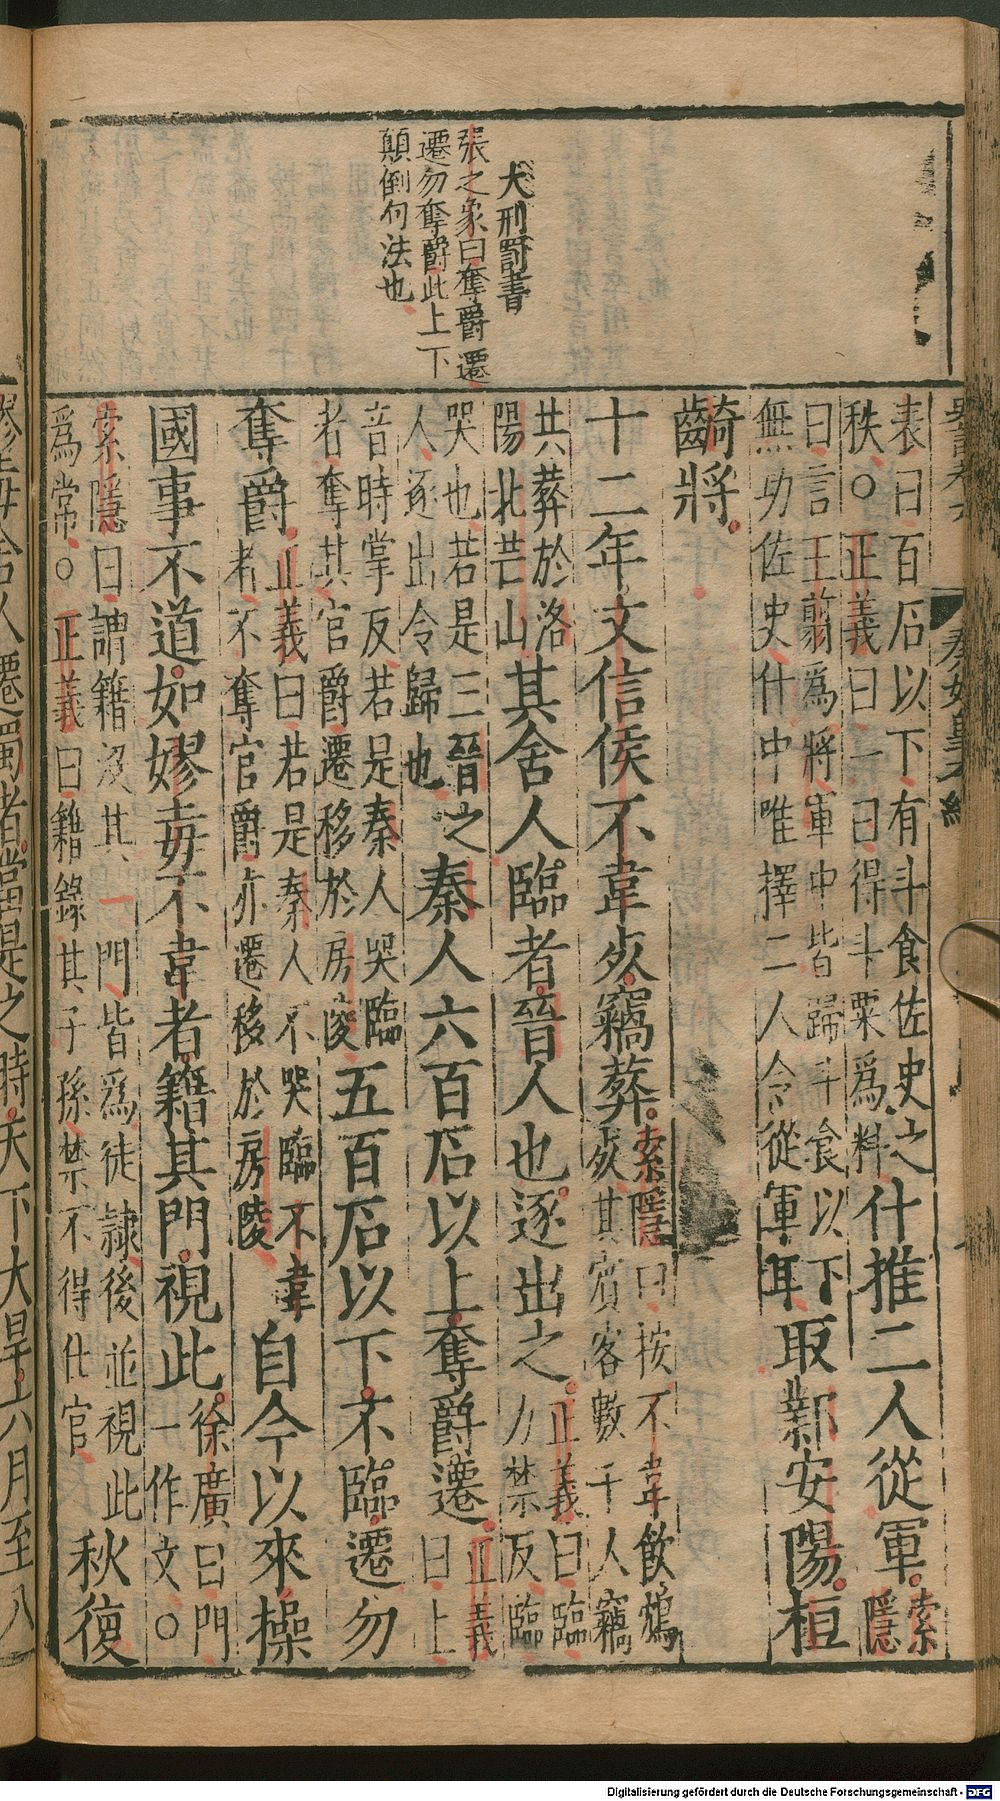 犬刑罰書
張之象曰奪爵遷
遷勿奪爵此上下
顛倒句法也
秦始皇本紀
表曰百石以下有斗食佐史之
秩○正義曰一曰得斗粟爲料
什推二人從軍
索
隱
曰言王翦爲將軍中皆歸斗食以下
無功佐史什中唯擇二人令從軍耳
取鄴安陽桓
齮將
十二年文信侯不韋死竊葬
索隱曰按不韋飲鴆
死其賓客數千人竊
共葬於洛
陽北芒山
其舍人臨者晉人也逐出之
正義曰臨
力禁反臨
哭也若是三晉之
人逐出令歸也
秦人六百石以上奪爵遷
正義
曰上
音時掌反若是秦人哭臨
者奪其官爵遷移於房陵
五百石以下不臨遷勿
奪爵
正義曰若是秦人不哭臨不韋
者不奪官爵亦遷移於房陵
自今以來操
國事不道如嫪毐不韋者籍其門視此
徐廣曰門
一作文○
索隱曰謂籍沒其一門皆爲徒隷後並視此
爲常○正義曰籍錄其子孫禁不得仕宦
秋復
嫪毐舍人遷蜀者當是之時天下大旱六月至八
Digitalisierung gefördert durch die Deutsche Forschungsgemeinschaft - DFG